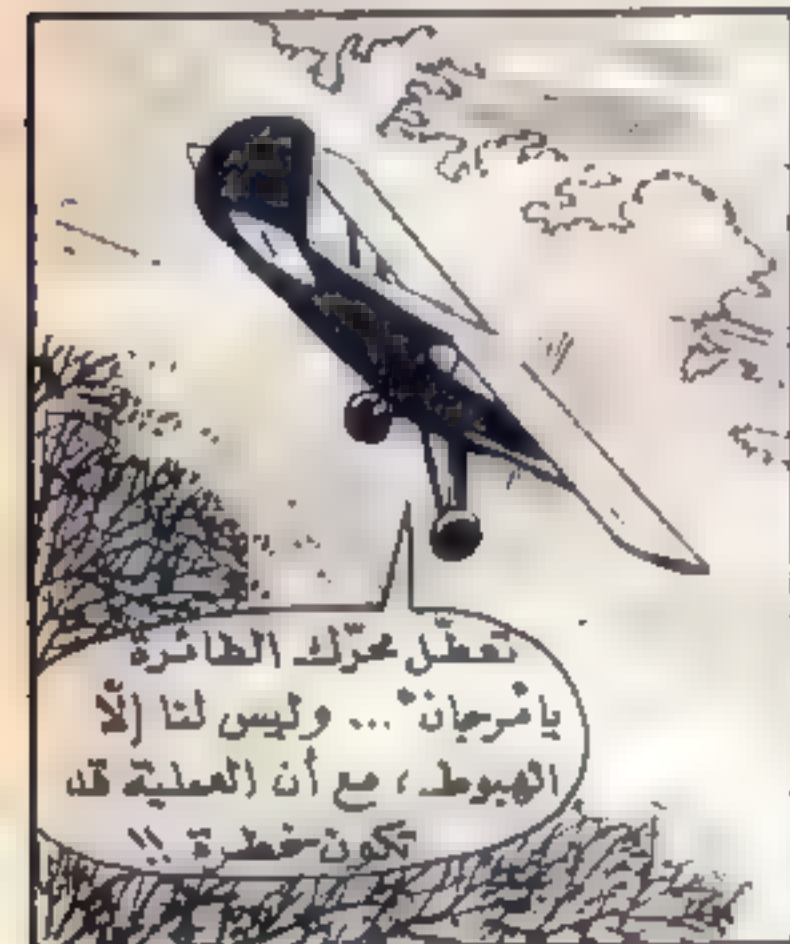 تعطّل محرّك الطائرة
يا مرجان ... وليس لنا إلّا
الهبوط ، مع أن العملية قد
تكون خطرة !!